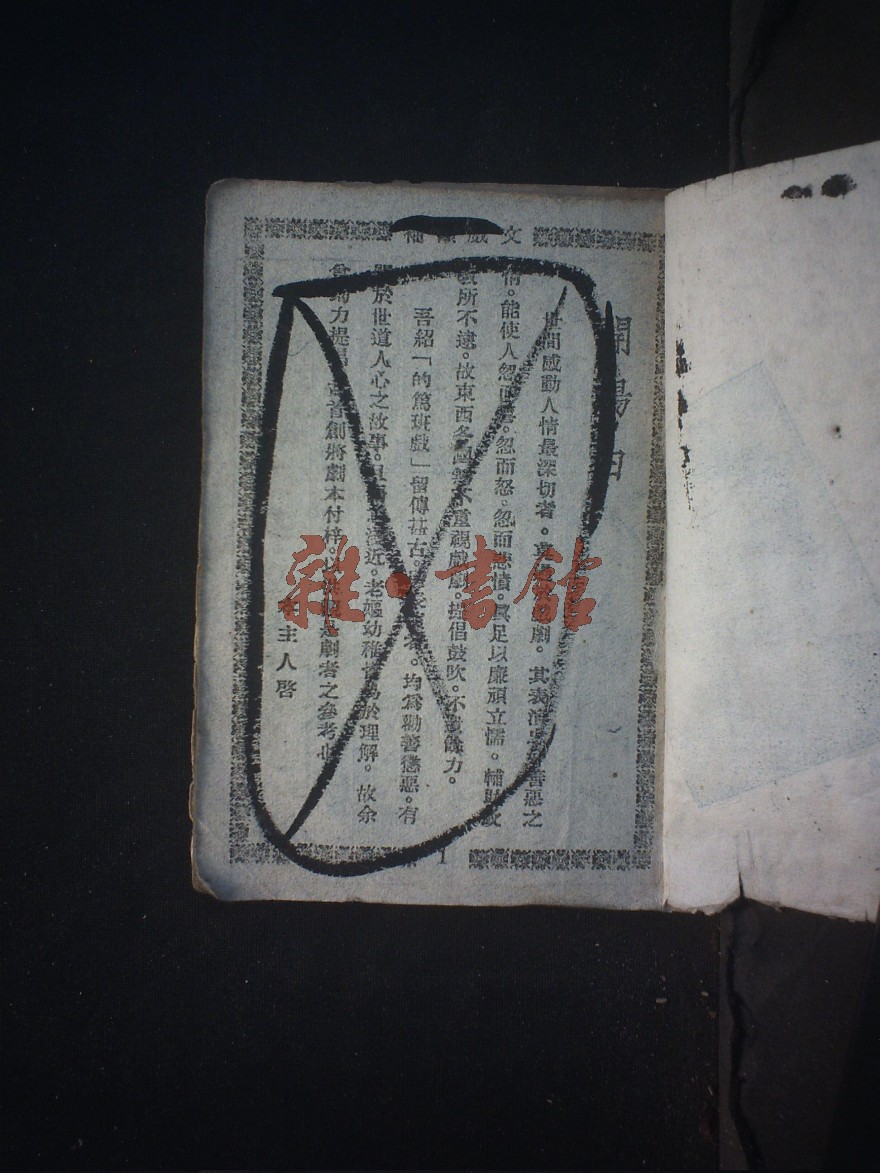 文戲
開場白
世間感動人情最深切者。戲劇。其表演善惡之
情。能使人忽而喜。忽而怒。忽而悲憤。眞足以廉頑立懦。輔助政
敎所不逮。故東西各國無不重視戲劇。提倡鼓吹。不遺餘力。
吾紹「的篤班戲」留傳甚古。均爲勸善懲惡。有
關於世道人心之故事。淺近。老嫗幼稚皆易於理解。故余
力提首創將劇本付梓。以劇者之參考也
主人啓
1
雜·書館